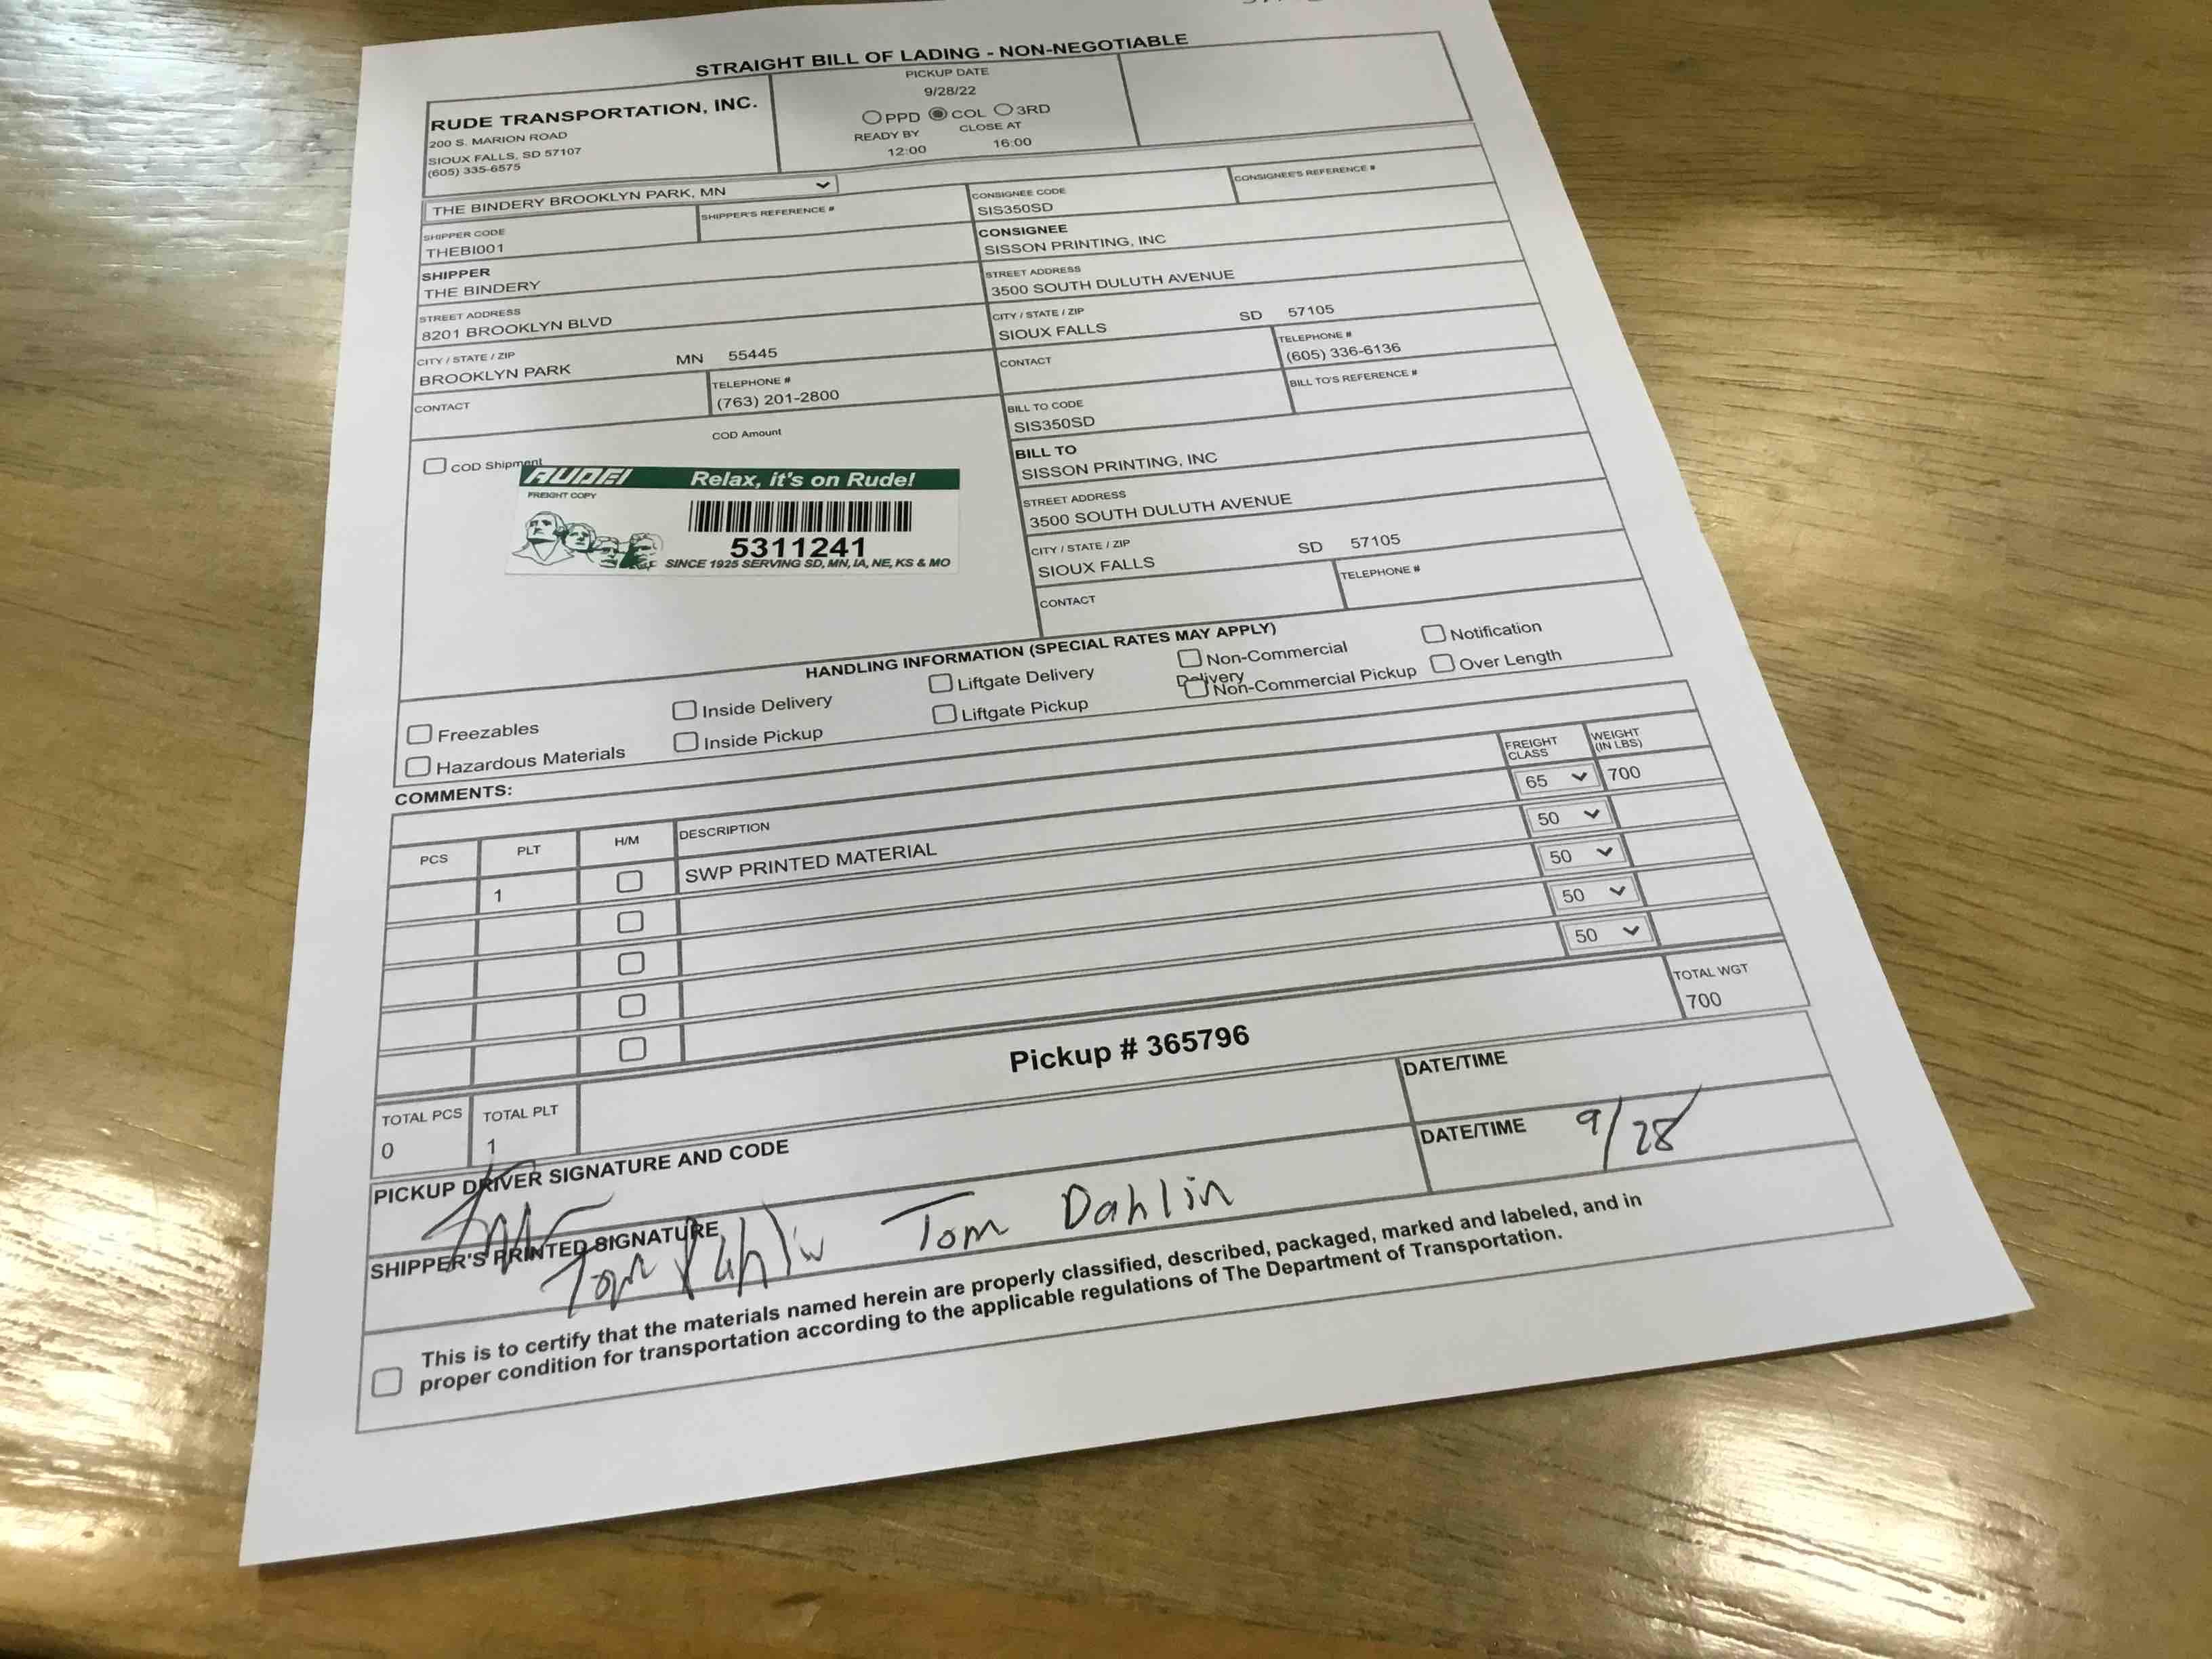 STRAIGHT BILL OF LADING - NON-NEGOTIABLE
RUDE TRANSPORTATION, INC.
200 S. MARION ROAD
SIOUX FALLS, SD 57107
(605) 335-6575
PICKUP DATE
9/28/22
PPD COL 3RD
READY BY CLOSE AT
12:00 16:00
THE BINDERY BROOKLYN PARK, MN
SHIPPER CODE
THEBI001
SHIPPER'S REFERENCE #
SHIPPER
THE BINDERY
STREET ADDRESS
8201 BROOKLYN BLVD
CITY / STATE / ZIP
BROOKLYN PARK MN 55445
CONTACT
TELEPHONE #
(763) 201-2800
CONSIGNEE CODE
SIS350SD
CONSIGNEE'S REFERENCE #
CONSIGNEE
SISSON PRINTING, INC
STREET ADDRESS
3500 SOUTH DULUTH AVENUE
CITY / STATE / ZIP
SIOUX FALLS SD 57105
CONTACT
TELEPHONE #
(605) 336-6136
COD Amount
COD Shipment
RUDE!
Relax, it's on Rude!
FREIGHT COPY
5311241
SINCE 1925 SERVING SD, MN, IA, NE, KS & MO
BILL TO CODE
SIS350SD
BILL TO'S REFERENCE #
BILL TO
SISSON PRINTING, INC
STREET ADDRESS
3500 SOUTH DULUTH AVENUE
CITY / STATE / ZIP
SIOUX FALLS SD 57105
CONTACT
TELEPHONE #
HANDLING INFORMATION (SPECIAL RATES MAY APPLY)
Freezables
Inside Delivery
Liftgate Delivery
Non-Commercial
Delivery
Notification
Hazardous Materials
Inside Pickup
Liftgate Pickup
Non-Commercial Pickup
Over Length
COMMENTS:
PCS PLT H/M DESCRIPTION FREIGHT CLASS WEIGHT (IN LBS)
1 SWP PRINTED MATERIAL 65 700
50
50
50
50
TOTAL PCS
0
TOTAL PLT
1
Pickup # 365796
TOTAL WGT
700
PICKUP DRIVER SIGNATURE AND CODE
DATE/TIME
SHIPPER'S PRINTED SIGNATURE
Tom Dahlin Tom Dahlin
DATE/TIME 9/28
This is to certify that the materials named herein are properly classified, described, packaged, marked and labeled, and in
proper condition for transportation according to the applicable regulations of The Department of Transportation.